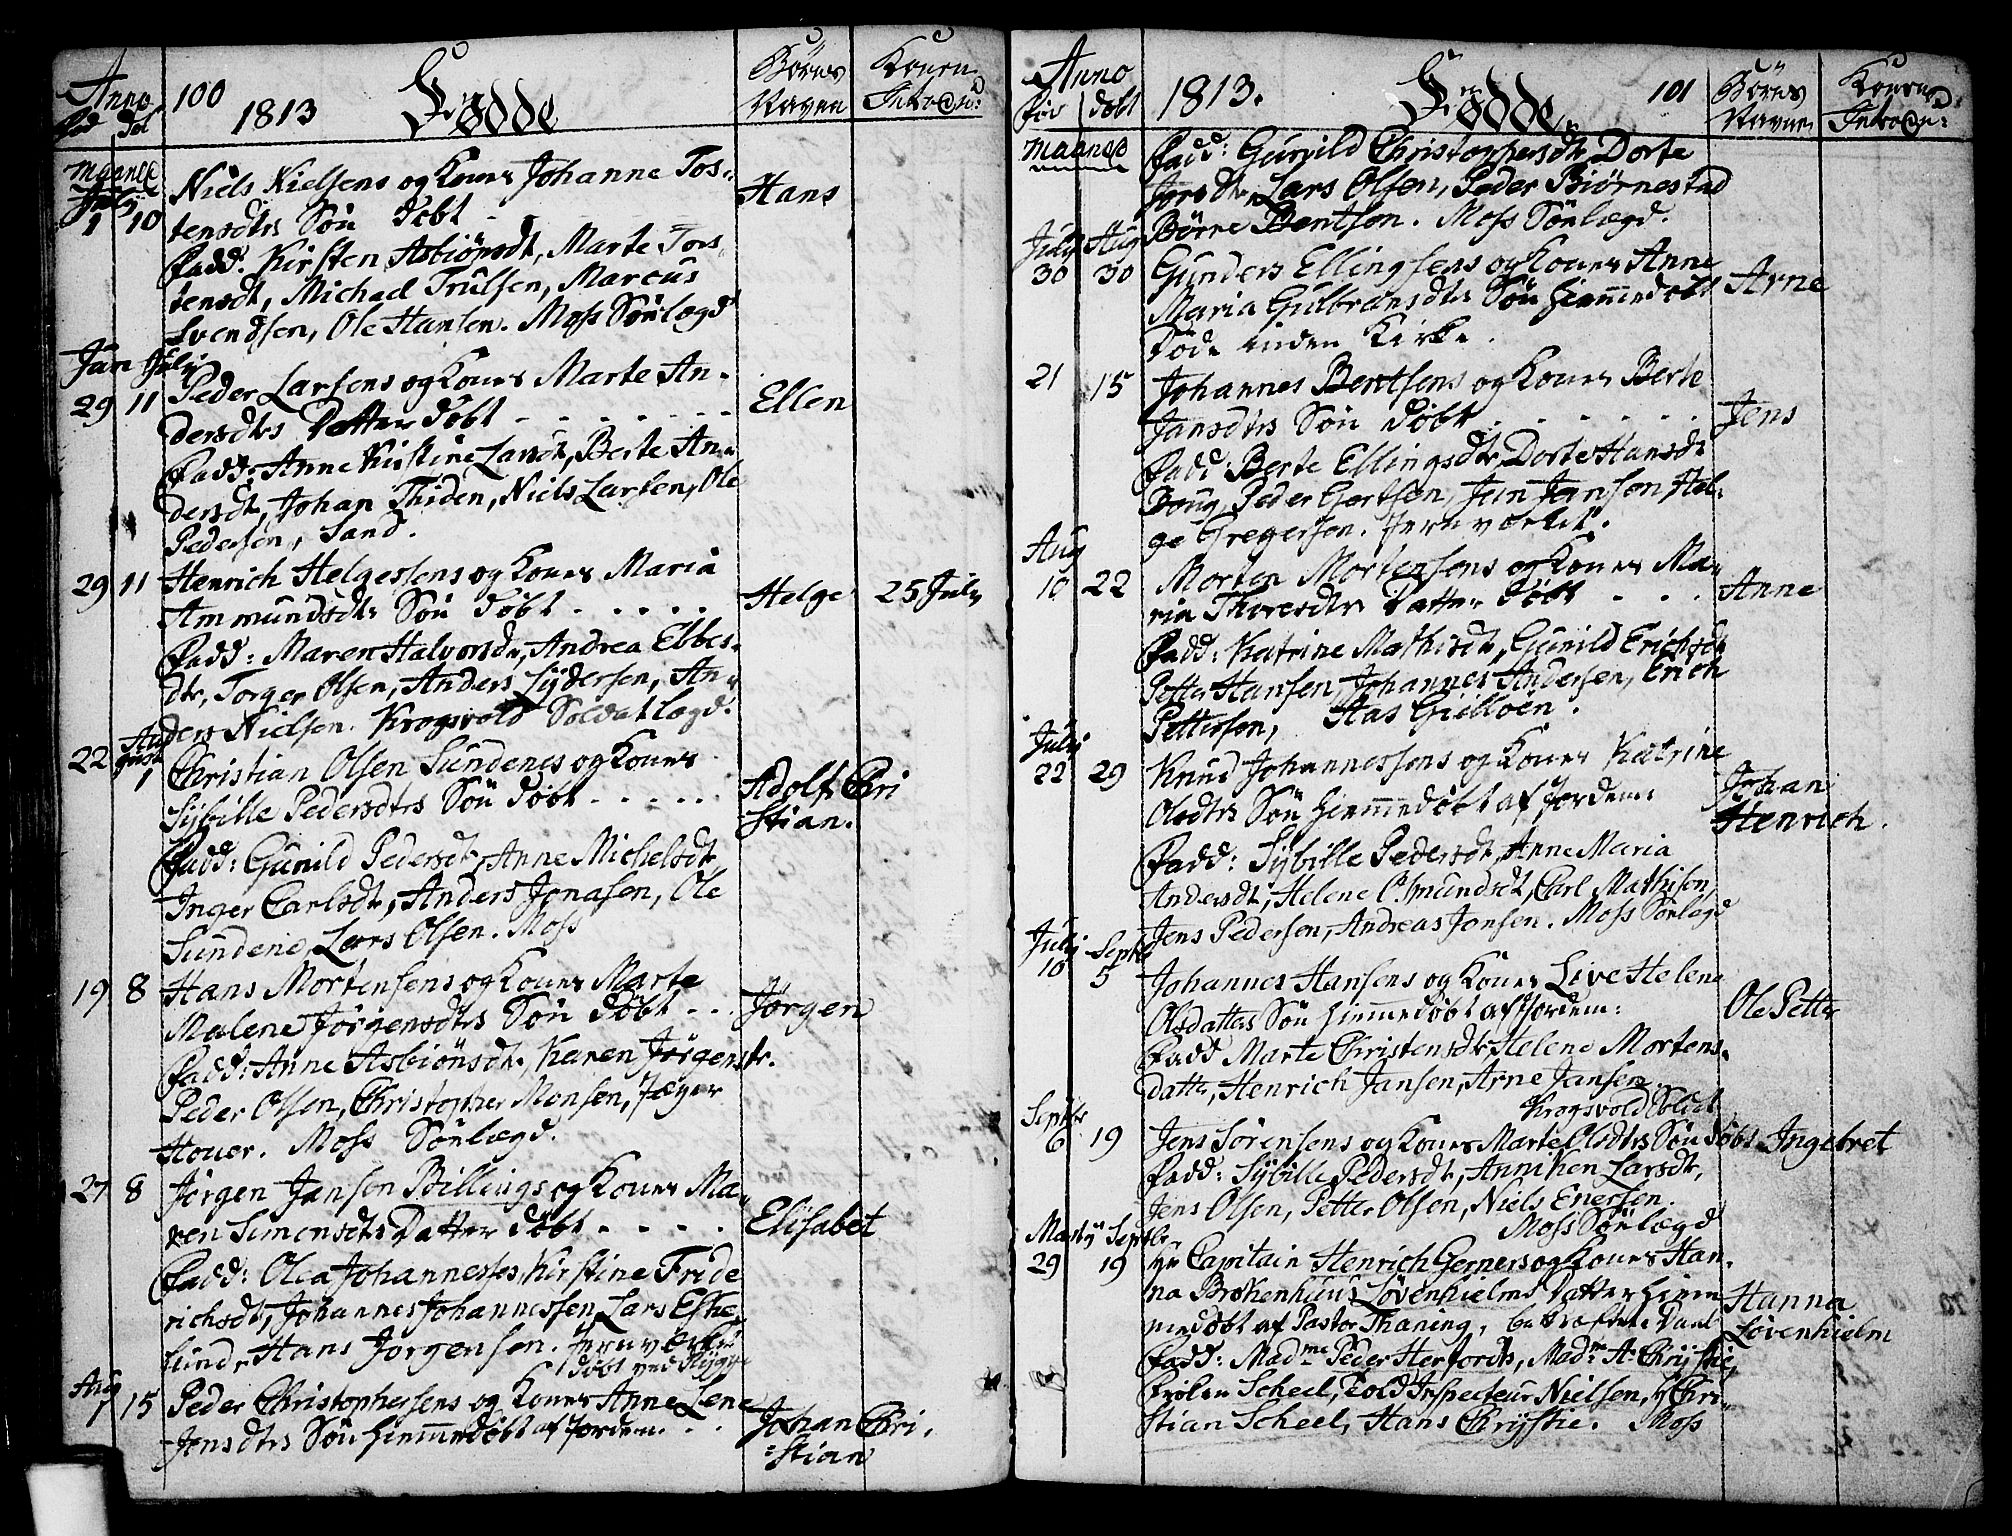 Anno 100 1813 Födde Börnes Navne Konens Introd:
Föd Döb
Maanet
July
1 10 Niels Nielsens og Kones Johanne Tos-
tensdtrs Sön döbt Hans
Fadd: Kirsten Asbiönsdt, Marte Tors
tensdt, Michael Trulsen, Marcus
Svendsen, Ole Hansen. Moss Sönlægd
Jun July
29 11 Peder Larsens og Kones Marte An-
dersdtrs Datter döbt Ellen
Fadd: Anne Kirstine Larsdt, Berte An-
dersdt, Johan Thiden, Niels Larsen, Ole
Pedersen, Sand.
29 11 Henrich Helgessens og Kones Maria
Ammundsdtr Sön döbt Helge 25 July
Fadd: Maren Halvorsdr, Andrea Ebbes-
dtr, Torger Olsen, Anders Lydersen, An-
ders Nielsen. Krogsvold Soldatlægd.
22 August 1 Christian Olsen Sundenes og Kones
Sybille Pedersdtrs Sön döbt Adolf Chri
stian.
Fadd: Gunild Pedersdt, Anne Michelsdt
Inger Carlsdt, Anders Jonasen, Ole
Sundene, Lars Olsen. Moss
19 8 Hans Mortensens og Kones Marte
Malene Jörgensdtrs Sön döbt Jörgen
Fadd: Anne Asbiönsdt, Karen Jörgensdtr.
Peder Olsen, Christopher Monsen, Jæger
Houer. Moss Sönlægd.
27 8 Jörgen Jansen Billings og Kones Ma-
ren Simensdts Datter döbt Elisabet
Fadd: Olea Johannesses, Kirstine Fride
richsdt, Johannes Johannessen, Lars Eske
lund, Hans Jorgensen. Jernværket
döbt ved Rygge
Aug
1 15 Peder Christophersens og Kones Anne Lene
Jensdtrs Sön hiemmedöbt af Jordem. Johan Chri-
stian
Anno 1813. Födde 101 Börnes Navne Konens Introd:
Föd döbt
Maanet
Fadd: Gunild Christophersdt, Dorte
Jorsdt, Lars Olsen, Peder Biörnestad
Börre Bentsen. Moss Sönlægd.
July Aug
30 30 Gunders Ellingsens og Kones Anne
Maria Gulbransdtrs Sön hiemmedöbt Arne
döde inden Kirke.
21 15 Johannes Bentsens og Kones Berte
Jansdtrs Sön döbt Jens
Fadd: Berte Ellingsdt, Dorte Hansdt
Boug, Peder Gertsen, Jan Jansen, Hel-
ge Gregersen. Jernværket.
Aug
10 22 Morten Mortensens og Kones Ma-
rie Thoresdtrs Datter döbt Anne
Fadd: Katrine Mathisdt, Gunild Erichsdt
Petter Hansen, Johannes Andersen, Erich
Pettersen, Aas Gielløen.
July
22 29 Knud Johannessens og Kones Katrine
Olsdtrs Sön hiemmedöbt af Jordem: Johan
Henrich.
Fadd: Sybille Pedersdt, Anne Maria
Andersdt, Helene Osmundsdt, Carl Mathisen,
Jens Pedersen, Andreas Jonsen. Moss Sönlægd
July Septbr
16 5 Johannes Hansens og Kones Live Helene
Olsdatters Sön hiemmedöbt af Jordem: Ole Petter
Fadd Marte Christensdtr Helene Mortens-
datter, Henrich Jansen, Arne Jansen.
Krogsvold Soldat
Septbr
6 19 Jens Sörensens og Kones Marte Olsdtrs Sön döbt Ingebret
Fadd: Sybille Pedersdt, Anniken Larsdt,
Jens Olsen, Petter Olsen, Niels Enersen.
Moss Sönlægd
Martij Septbr
29 19 Hr Capitain Henrich Gerners og Kones Han-
na Brokenhuus Lövenhielms Datter hiem Hanna
medöbt af Pastor Thaning, bekræftet Daab Lövenhielm
Fadd: Madme Peder Herfordts, Madm: A. Chrystie,
Fröken Scheel, Told Inspecteur Nielsen, H Chri-
stian Scheel, Hans Chrystie. Moss